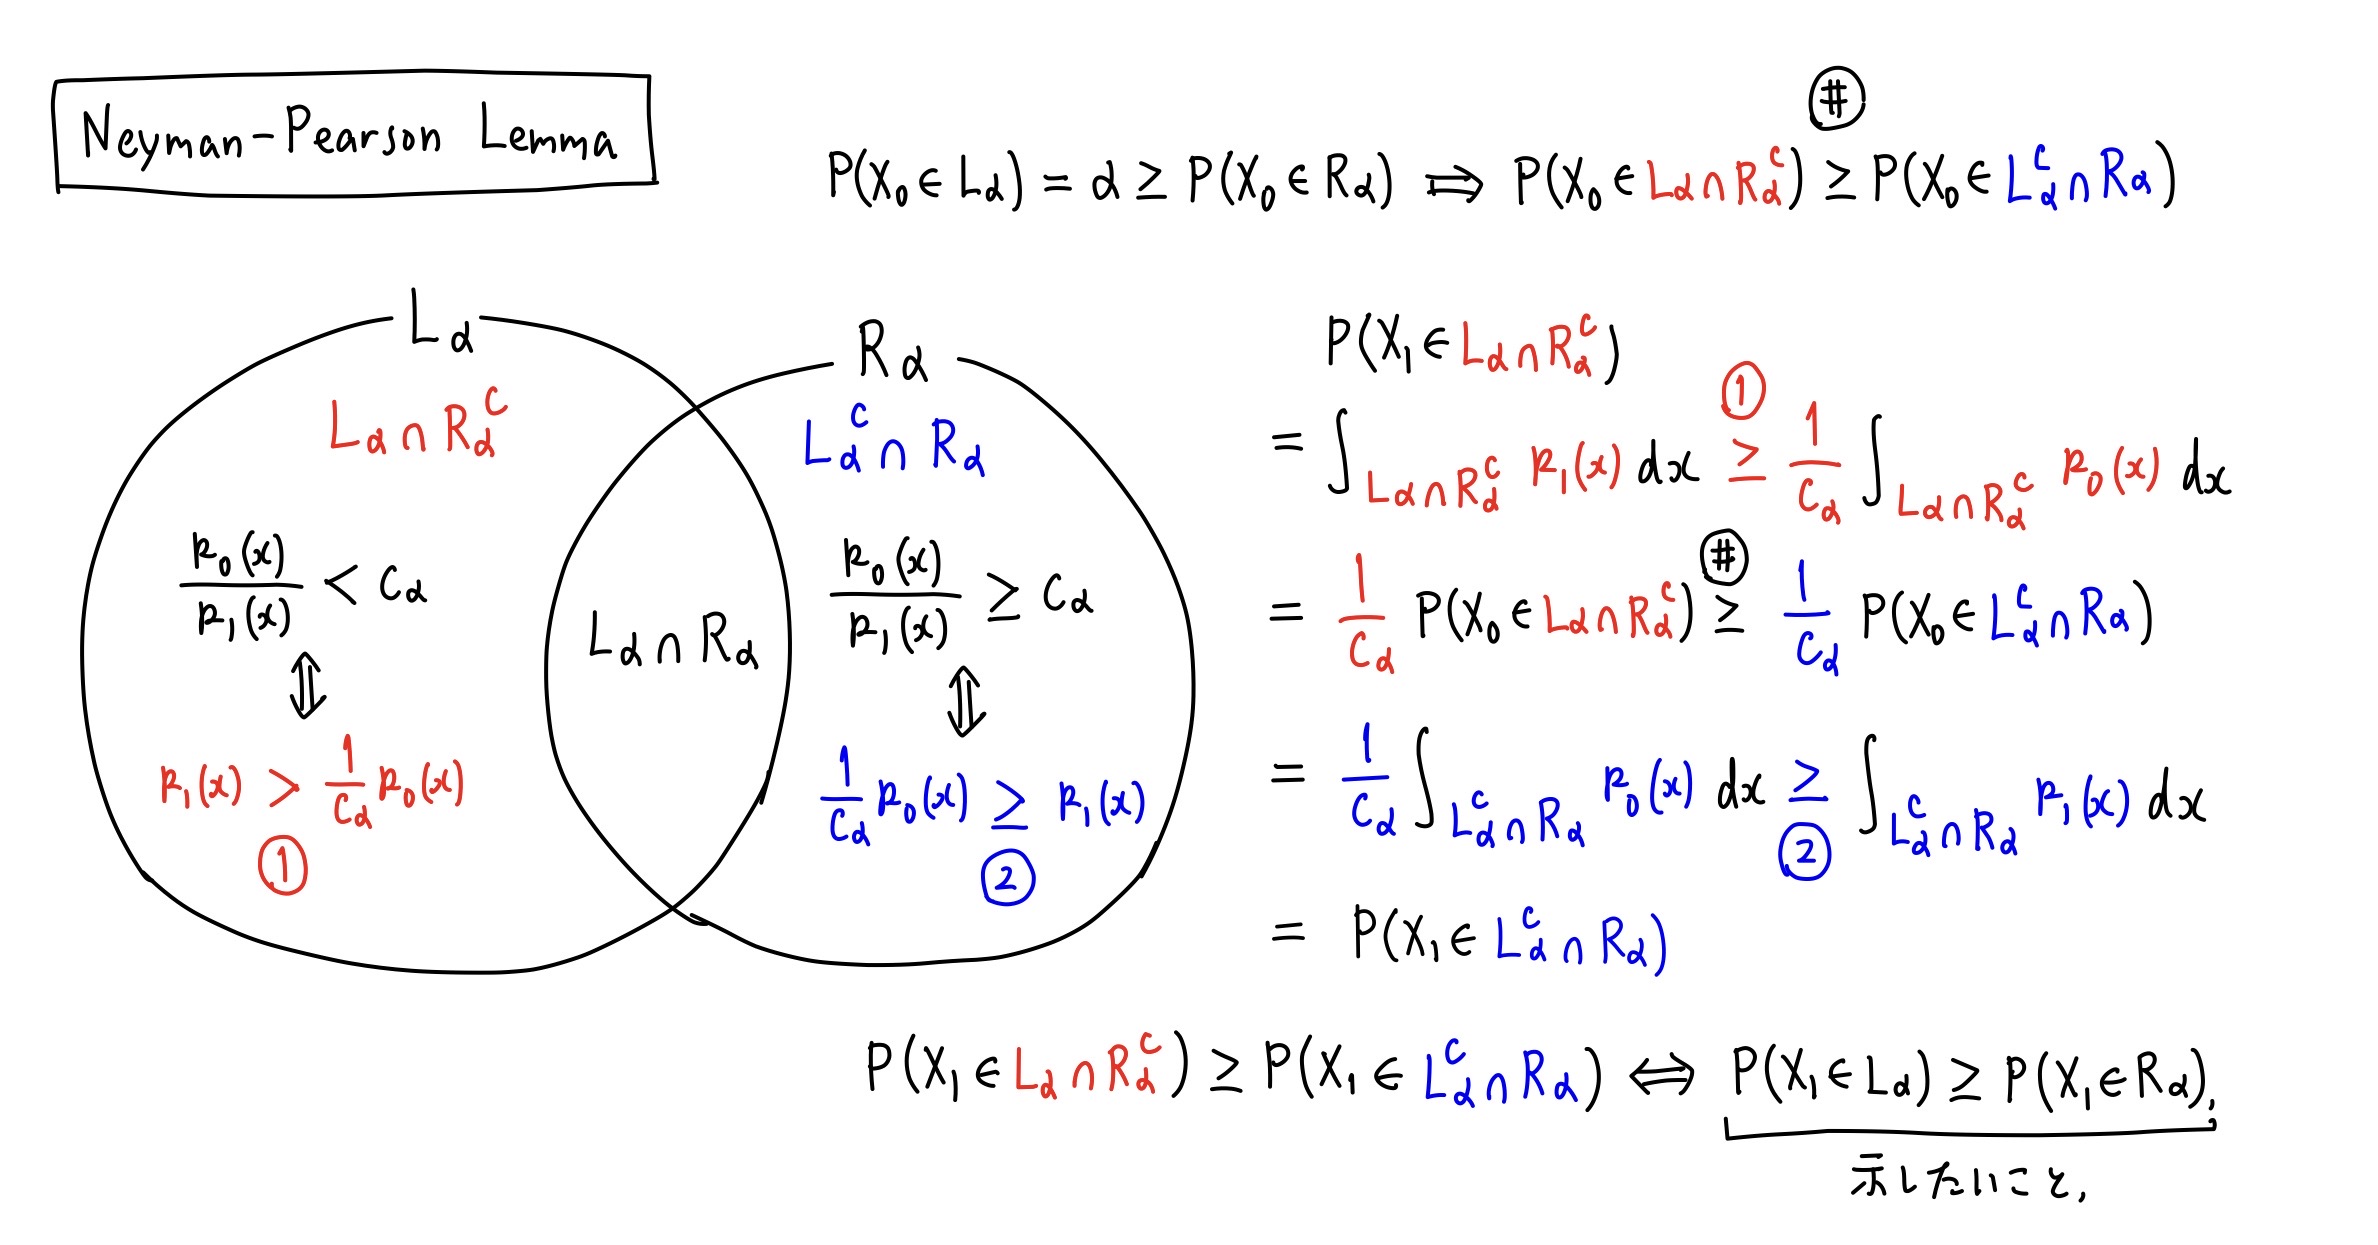 Neyman-Pearson Lemma
#
P(X₀ ∈ Lα) = α ≥ P(X₀ ∈ Rα) ⟹ P(X₀ ∈ Lα ∩ Rα^c) ≥ P(X₀ ∈ Lα^c ∩ Rα)
Lα
Lα ∩ Rα^c
p₀(x)/p₁(x) < cα
⇕
p₁(x) > 1/cα p₀(x)
①
Lα ∩ Rα
Rα
Lα^c ∩ Rα
p₀(x)/p₁(x) ≥ cα
⇕
1/cα p₀(x) ≥ p₁(x)
②
P(X₁ ∈ Lα ∩ Rα^c)
①
= ∫_{Lα ∩ Rα^c} p₁(x) dx ≥ 1/cα ∫_{Lα ∩ Rα^c} p₀(x) dx
#
= 1/cα P(X₀ ∈ Lα ∩ Rα^c) ≥ 1/cα P(X₀ ∈ Lα^c ∩ Rα)
= 1/cα ∫_{Lα^c ∩ Rα} p₀(x) dx ≥ ∫_{Lα^c ∩ Rα} p₁(x) dx
②
= P(X₁ ∈ Lα^c ∩ Rα)
P(X₁ ∈ Lα ∩ Rα^c) ≥ P(X₁ ∈ Lα^c ∩ Rα) ⟺ P(X₁ ∈ Lα) ≥ P(X₁ ∈ Rα),
示したいこと,